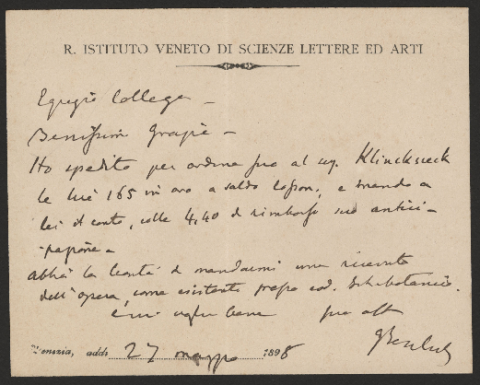 R. ISTITUTO VENETO DI SCIENZE LETTERE ED ARTI
Egregio Collega –
Benissimo Grazie –
Ho spedito per ordine suo al sig. Klincksieck
le lire 165 in oro a saldo ; e mando a
lei il conto, colle 4,40 di rimborso sua antici-
-pazione –
abbia la bontà di mandarmi una ricevuta
dell'opera, come esistente presso cod. Ist. botanico.
e mi voglia bene suo aff
Venezia, addì 27 maggio 1898